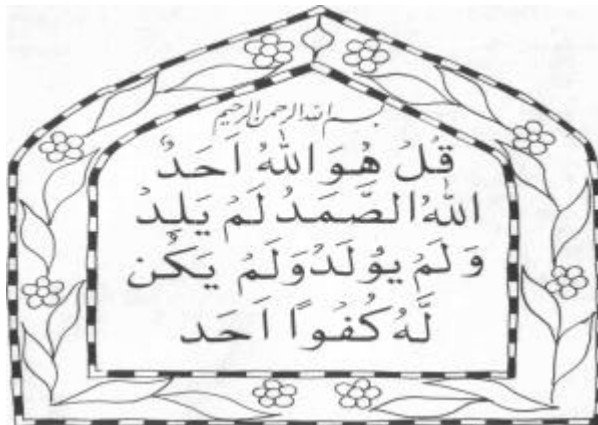 بسم الله الرحمن الرحيم
قُلْ هُوَ اللهُ اَحَدٌ
اللهُ الصَّمَدُ لَمْ يَلِدْ
وَلَمْ يُولَدْ وَلَمْ يَكُن
لَّهُ كُفُوًا اَحَد